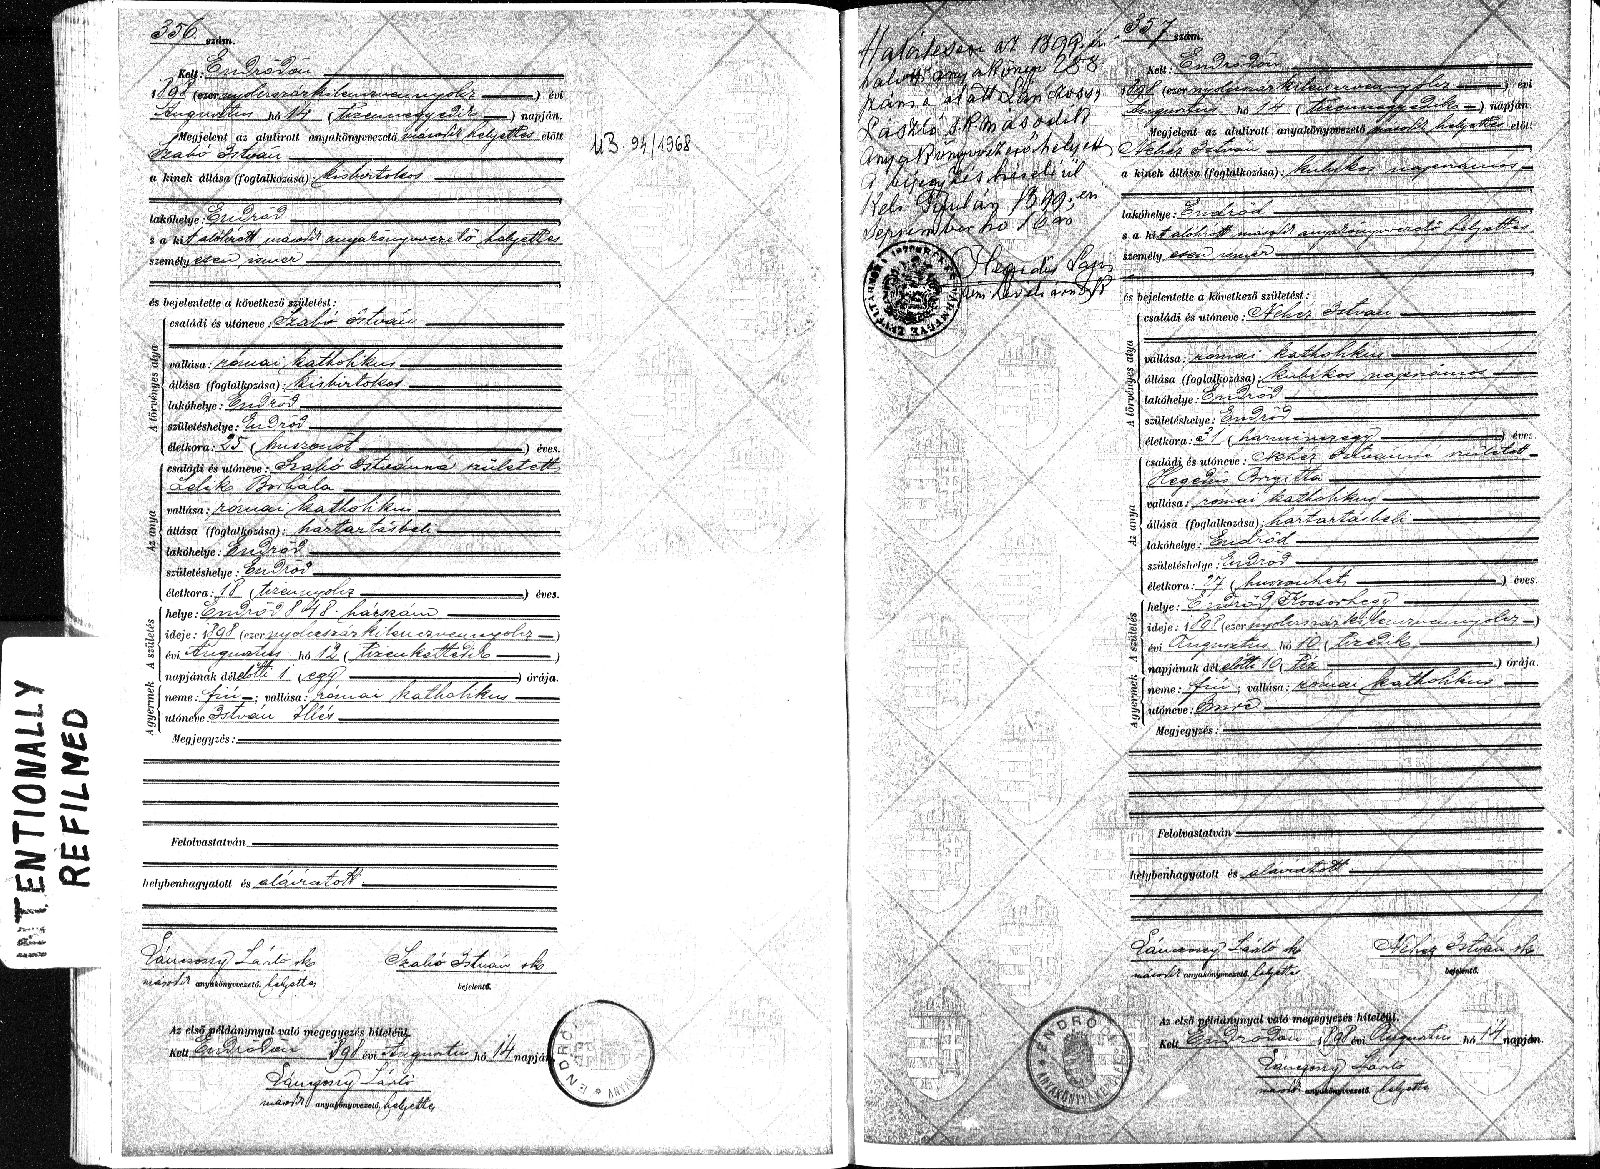 356 szám.
Kelt: Endrődön
1898 (ezernyolczszázkilenczvennyolcz) évi
Augusztus hó 14 (tizennegyedik) napján.
Megjelent az alulirott anyakönyvvezető másodk helyettes előtt
Szabó István
a kinek állása (foglalkozása): kisbirtokos
lakóhelye: Endrőd
s a kit alólirott másodk anyakönyvvezető helyettes
személyesen ismer
és bejelentette a következő születést:
A törvényes atya
családi és utóneve: Szabó István
vallása: római katholikus
állása (foglalkozása): kisbirtokos
lakóhelye: Endrőd
születéshelye: Endrőd
életkora: 25 (huszonöt) éves.
Az anya
családi és utóneve: Szabó Istvánná született
Borbála
vallása: római katholikus
állása (foglalkozása): háztartásbeli
lakóhelye: Endrőd
születéshelye: Endrőd
életkora: 18 (tizennyolcz) éves.
A születés
helye: Endrőd 848 házszám
ideje: 1898 (ezernyolczszázkilenczvennyolcz)
évi Augusztus hó 12 (tizenkettedik)
napjának délelőtti 1 (egy) órája.
A gyermek
neme: fiú; vallása: római katholikus
utóneve István Illés
Megjegyzés:
Felolvastatván
helybenhagyatott és aláiratott
Lánczossy László sk
másodk anyakönyvvezető. helyettes
Szabó István sk
bejelentő.
Az első példánynyal való megegyezés hiteléül.
Kelt Endrődön 1898 évi Augusztus hó 14 napján.
Lánczossy László
másodk anyakönyvvezető. helyettes
ENDRŐD
94/1968
357 szám.
Kelt: Endrődön
1898 (ezernyolczszázkilenczvennyolcz) évi
Augusztus hó 14 (tizennegyedik) napján.
Megjelent az alulirott anyakönyvvezető másodk helyettes előtt
Nehéz István
a kinek állása (foglalkozása): kubikos napszámos
lakóhelye: Endrőd
s a kit alólirott másodk anyakönyvvezető helyettes
személyesen ismer
és bejelentette a következő születést:
A törvényes atya
családi és utóneve: Nehéz István
vallása: római katholikus
állása (foglalkozása): kubikos napszámos
lakóhelye: Endrőd
születéshelye: Endrőd
életkora: 31 (harminczegy) éves
Az anya
családi és utóneve: Nehéz Istvánné született
Hegedüs Brigitta
vallása: római katholikus
állása (foglalkozása): háztartásbeli
lakóhelye: Endrőd
születéshelye: Endrőd
életkora: 27 (huszonhét) éves.
A születés
helye: Endrőd, Kocsorhegy
ideje: 1898 (ezernyolczszázkilenczvennyolcz)
évi Augusztus hó 10 (tizedik)
napjának délelőtti 10 (tíz) órája.
A gyermek
neme: fiú; vallása: római katholikus
utóneve: Imre
Megjegyzés:
Felolvastatván
helybenhagyatott és aláiratott
Lánczossy László sk
másodk anyakönyvvezető. helyettes
Nehéz István sk
bejelentő.
Az első példánynyal való megegyezés hiteléül.
Kelt Endrődön 1898 évi Augusztus hó 14 napján.
Lánczossy László
másodk anyakönyvvezető. helyettes
ENDRŐD
az 1899. évi
halotti anyakönyv 258
száma alatt Lánczossy
László s.k. második
anyakönyvvezető helyettes
A bejegyzés hiteléül
Kelt Gyulán 1899. évi
September hó 16
INTENTIONALLY
REFILMED